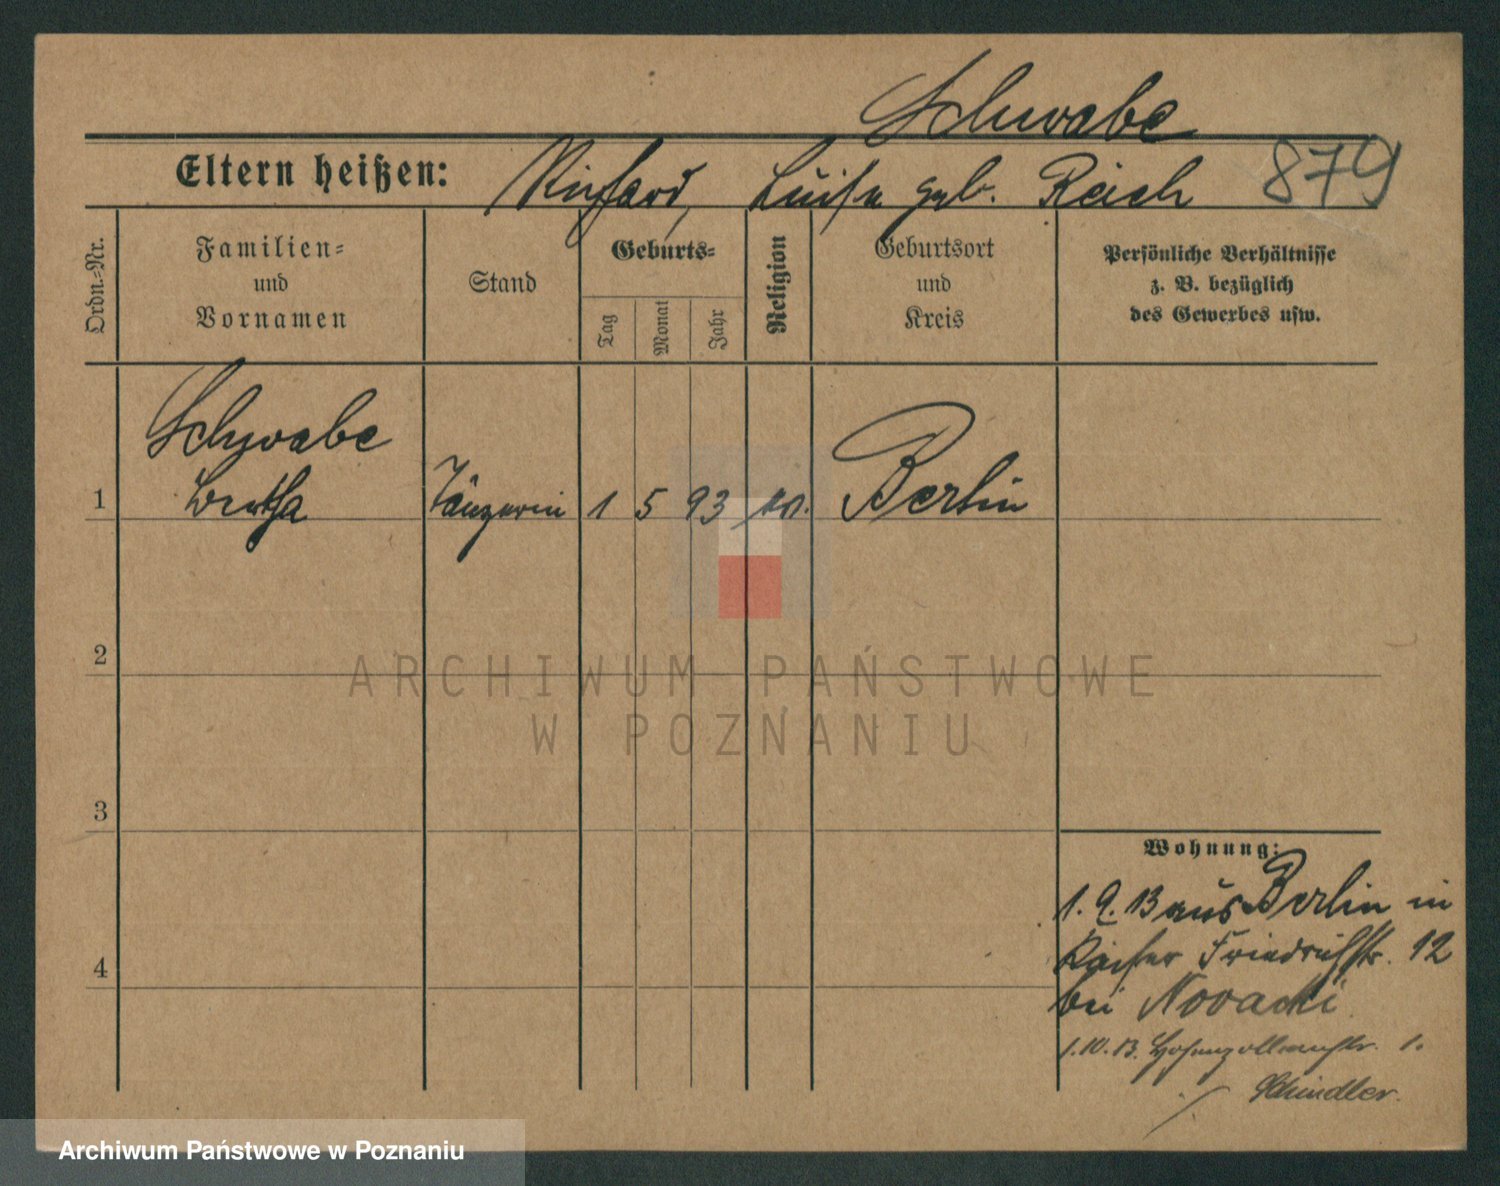 Schwabe
Eltern heißen: Richard, Luise geb. Reich 879
Ordn.-Nr.
Familien-
und
Vornamen
Stand
Geburts-
Tag
Monat
Jahr
Religion
Geburtsort
und
Kreis
Persönliche Verhältnisse
z. B. bezüglich
des Gewerbes usw.
Schwabe
1 Bertha Tänzerin 1 5 93 ev. Berlin
2
ARCHIWUM PAŃSTWOWE
W POZNANIU
3
Wohnung:
1. 9. 13 aus Berlin in
Kaiser Friedrichstr. 12
4
bei Novacki
1.10.13. Hohenzollernstr. 1.
Schindler.
Archiwum Państwowe w Poznaniu